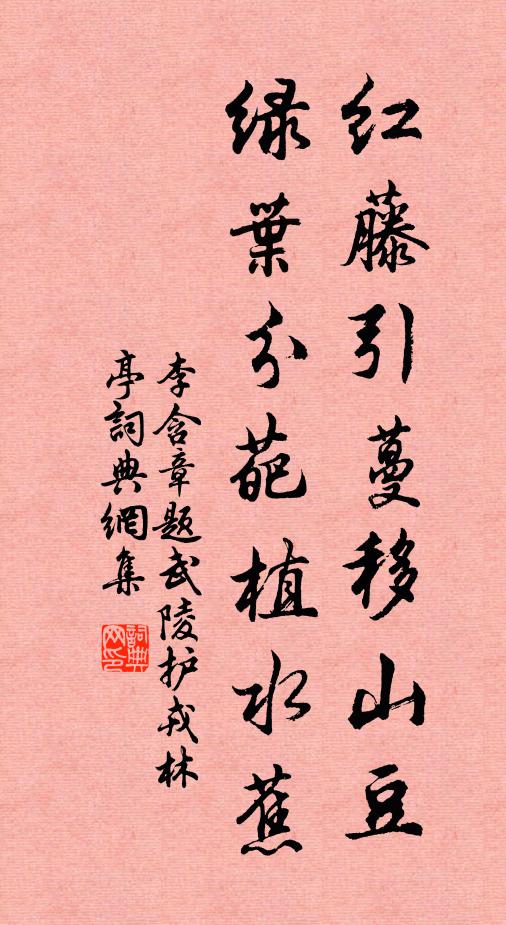 红藤引蔓移山豆
绿葉分葩植水蕉
李含章题武陵护戎林
亭詞典網集
詞典网印